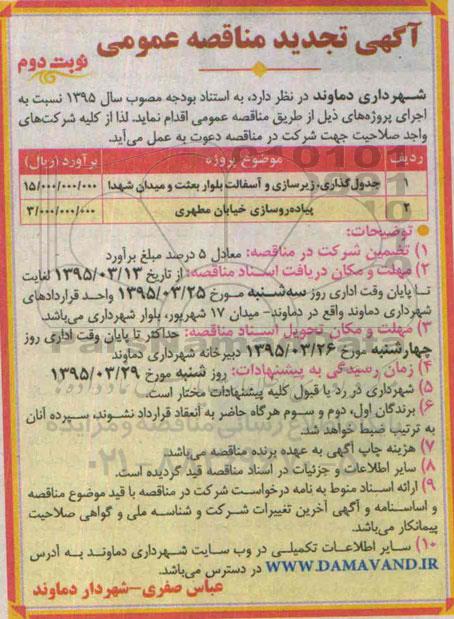 آگهی تجدید مناقصه عمومی
نوبت دوم
شهرداری دماوند در نظر دارد، به استناد بودجه مصوب سال ۱۳۹۵ نسبت به
اجرای پروژه‌های ذیل از طریق مناقصه عمومی اقدام نماید. لذا از کلیه شرکت‌های
واجد صلاحیت جهت شرکت در مناقصه دعوت به عمل می‌آید.
ردیف موضوع پروژه برآورد (ریال)
۱ جدول‌گذاری، زیرسازی و آسفالت بلوار بعثت و میدان شهدا ۱۵/۰۰۰/۰۰۰/۰۰۰
۲ پیاده‌روسازی خیابان مطهری ۳/۰۰۰/۰۰۰/۰۰۰
توضیحات:
۱) تضمین شرکت در مناقصه: معادل ۵ درصد مبلغ برآورد
۲) مهلت و مکان دریافت اسناد مناقصه: از تاریخ ۱۳۹۵/۰۳/۱۳ لغایت
تا پایان وقت اداری روز سه‌شنبه مورخ ۱۳۹۵/۰۳/۲۵ واحد قراردادهای
شهرداری دماوند واقع در دماوند- میدان ۱۷ شهریور، بلوار شهرداری می‌باشد.
۳) مهلت و مکان تحویل اسناد مناقصه: حداکثر تا پایان وقت اداری روز
چهارشنبه مورخ ۱۳۹۵/۰۳/۲۶ دبیرخانه شهرداری دماوند
۴) زمان رسیدگی به پیشنهادات: روز شنبه مورخ ۱۳۹۵/۰۳/۲۹
۵) شهرداری در رد یا قبول کلیه پیشنهادات مختار است.
۶) برندگان اول، دوم و سوم هرگاه حاضر به انعقاد قرارداد نشوند، سپرده آنان
به ترتیب ضبط خواهد شد.
۷) هزینه چاپ آگهی به عهده برنده مناقصه می‌باشد.
۸) سایر اطلاعات و جزئیات در اسناد مناقصه قید گردیده است.
۹) ارائه اسناد منوط به نامه درخواست شرکت در مناقصه با قید موضوع مناقصه
و اساسنامه و آگهی آخرین تغییرات شرکت و شناسه ملی و گواهی صلاحیت
پیمانکار می‌باشد.
۱۰) سایر اطلاعات تکمیلی در وب سایت شهرداری دماوند به آدرس
WWW.DAMAVAND.IR در دسترس می‌باشد.
عباس صفری-شهردار دماوند